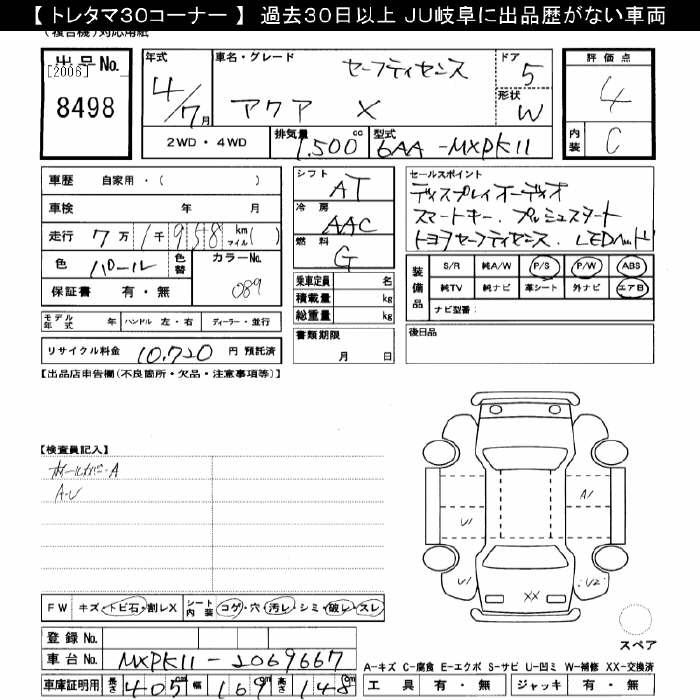 【トレタマ30コーナー】 過去30日以上 JU岐阜に出品歴がない車両
(複合機)対応用紙
出品No. [2006] 8498
年式 4/7月
車名・グレード セーフティセンス アクア X
ドア 5
形状 W
評価点 4
内装 C
2WD・4WD
排気量 1,500cc
型式 6AA-MXPK11
車歴 自家用・( )
車検 年 月
走行 7万1千958 km マイル( )
色 パロール 色替 カラーNo. 089
保証書 有・無
モデル年式 年 ハンドル 左・右 ディーラー・並行
リサイクル料金 10,720 円 預託済
シフト AT
冷房 AAC
燃料 G
乗車定員 名
積載量 kg
総重量 kg
書類期限 月 日
セールスポイント
ディスプレイオーディオ
スマートキー、プッシュスタート
トヨタセーフティセンス、LEDヘッド
装備品 S/R 純A/W P/S P/W ABS
純TV 純ナビ 革シート 外ナビ エアB
ナビ型番:
後日品
【出品店申告欄(不良箇所・欠品・注意事項等)】
【検査員記入】
ホールカバーA
A・U
A1
U1
U1
U2
XX
FW キズ・トビ石・割レX シート内装 コゲ・穴・汚レ・シミ・破レ・スレ
スペア
登録No.
車台No. MXPK11-2069667
A-キズ C-腐食 E-エクボ S-サビ U-凹ミ W-補修 XX-交換済
車庫証明用 長さ 405cm 幅 169cm 高さ 148cm
工具 有・無 ジャッキ 有・無